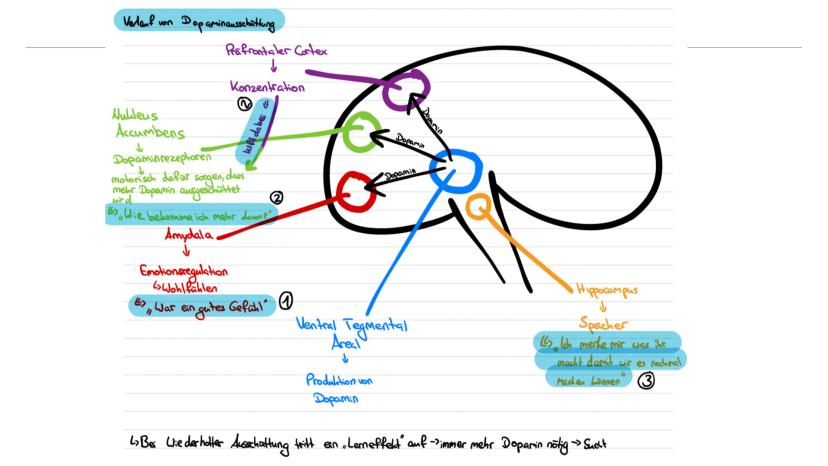 Verlauf von Dopaminausschüttung
Präfrontaler Cortex
↓
Konzentration
②
hilft dabei
Nukleus
Accumbens
↓
Dopaminrezeptoren
↓
motorisch dafür sorgen, dass
mehr Dopamin ausgeschüttet
wird
↳ „Wie bekomme ich mehr davon?"
②
Amydala
↓
Emotionsregulation
↳ Wohlfühlen
↳ „War ein gutes Gefühl"
①
Dopamin
Dopamin
Dopamin
Ventral Tegmental
Areal
↓
Produktion von
Dopamin
Hippocampus
↓
Speicher
↳ „Ich merke mir was ihr
macht damit wir es nochmal
machen können"
③
↳ Bei wiederholter Ausschüttung tritt ein „Lerneffekt" auf → immer mehr Dopamin nötig → Sucht